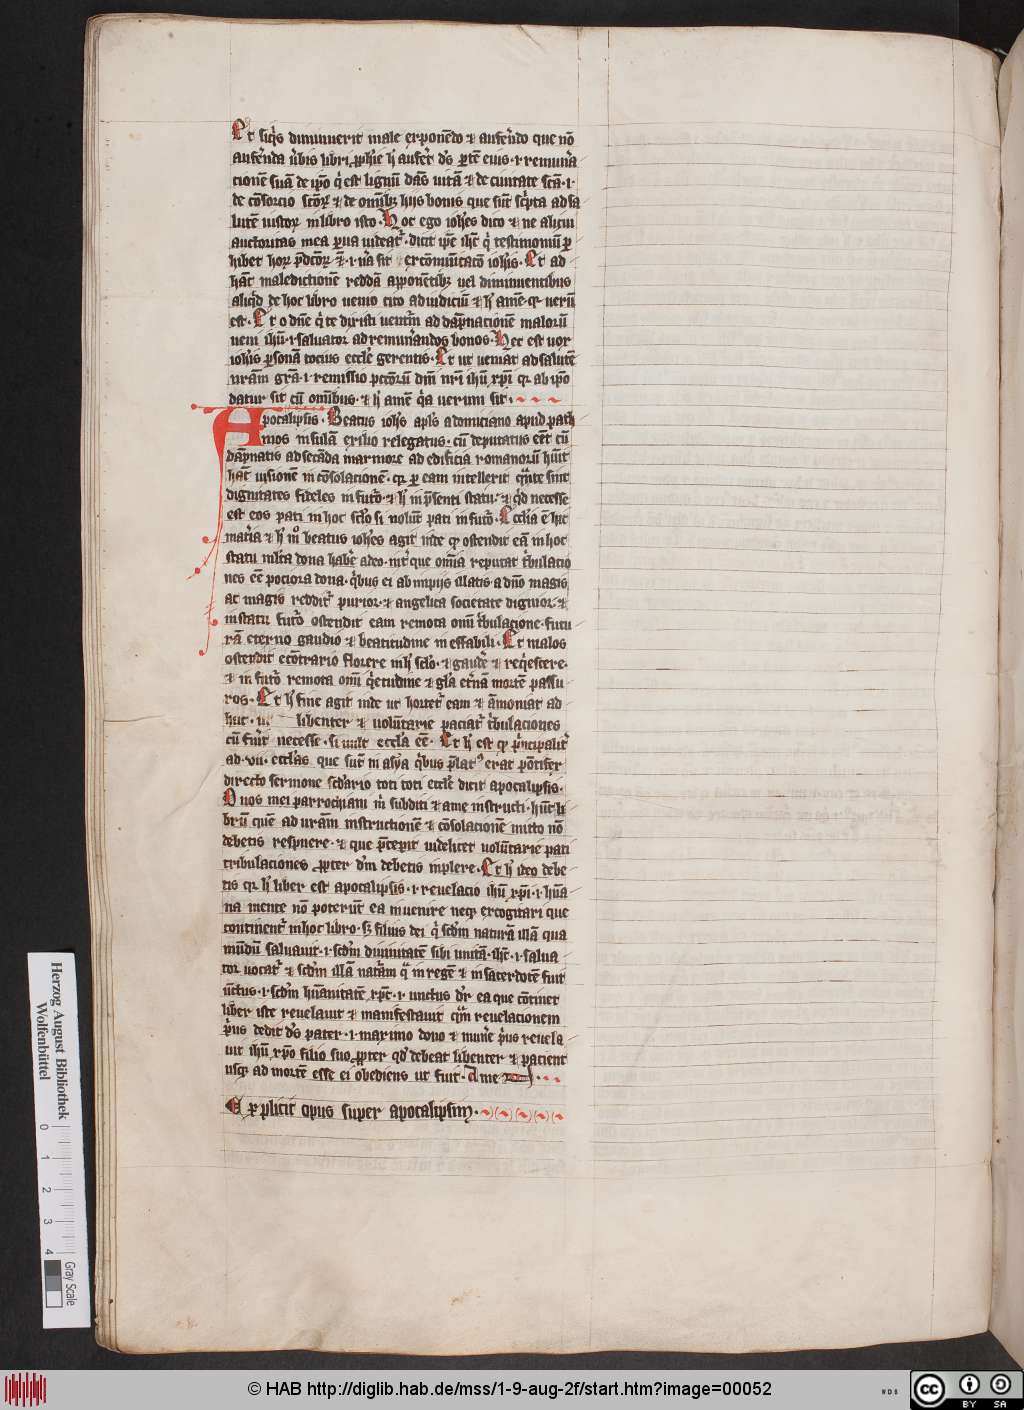 Et siq̄s diminuerit male exponēdo ⁊ auferēdo que nō
auferēda ūbis libri ꝓphīe h̄ auferet d̓s partē eius .i. remuna
cionē suā de ip̄o q̄ est lignū dās uitā ⁊ de ciuitate scā .i.
de cōsorcio scōꝝ ⁊ de omībꝫ hiis bonis que sūt sc̓pta ad sa
lutē iustoꝝ in libro isto . Hoc ego ioh̓es dico ⁊ ne alicui
auctoritas mea parua uideat̓ . dicit ip̄e ih̄c q̄ testimoniū ꝑ
hibet hoꝝ p̄dc̄oꝝ excōmunicacō ioh̄is . Et ad
hāc maledictionē reddā apponētibꝫ uel diminuentibus
aliq̄d de hoc libro uenio cito ad iudiciū ⁊ h̄ amē qꝛ uerū
est . Et o dn̄e q̄ te dixisti uentūꝝ ad dāpnacionē malorū
ueni ih̄u .i. saluator ad remunerandos bonos . Hec est uox
ioh̄is ꝑsonā tocius eccl̄e gerentis . Et ut ueniat ad salutē
ur̄am gr̄a .i. remissio pccōrū dn̄i nr̄i ih̄u xp̄i qꝛ ab ip̄o
datur sit cū omībus . ⁊ h̄ amē q̄a uerum sit .
Apocalipsis . Beatus ioh̄s apl̄s a domiciano apud path
mos insulā exilio relegatus . cū deputatus eēt cū
dāpnatis ad secāda marmore ad edificia romanorū
hāc uisionē in cōsolacionē . qꝛ ꝑ eam intellexit
dignitates fideles in futur̄o . ⁊ h̄ in p̄senti statu . ⁊ q̄d necesse
est eos pati in hoc sclo si nolūt pati in futur̄o . Eccl̄ia ē hic
mat̄ia ⁊ h̄ mō beatus ioh̄es agit inde qꝛ ostendit eā in hoc
statu ml̄ta dona hab̄e a deo . int̓ que omīa reputat t̓bulacio
nes eē pociora dona . q̄bus ei ab impiis illatis a dn̄o magis
ac magis reddit̓ purior . ⁊ angelica societate dignior . ⁊
in statu futur̄o ostendit eam remota omī t̓bulacione . futu
rā eterno gaudio ⁊ beatitudine ineffabili . Et malos
ostendit econtrario florere in h̄ sclo . ⁊ gaudē ⁊ reqiescere .
⁊ in futur̄o remota omī q̄etudine ⁊ gl̄a et̄nā mortē passu
ros . Et h̄ fine agit inde ut hortet̓ eam ⁊ āmoniat ad
huc . libenter ⁊ uolūtarie paciat̓ t̓bulaciones
cū fuīt necesse . si uult eccl̄a eē . Et h̄ est qꝛ p̄ncipalit̓
ad . vii . eccl̄as que sūt in asya q̄bus p̄lat⁹ erat pōtifex
directo sermone toti eccl̄e dicit apocalipsis .
O uos mei parrochiani m̄ subditi ⁊ a me instructi . hūc li
brū quē ad ur̄am instructionē ⁊ cōsolacionē mitto nō
debetis respuere . ⁊ que p̄cepit uidelicet uolūtarie pati
tribulaciones ꝓpter dm̄ debetis inplere . Et h̄ ideo debe
tis qꝛ h̄ liber est apocalipsis .i. reuelacio ih̄u xp̄i .i. hūa
na mente nō poterūt ea inuenire neqꝫ excogitari que
continent̓ in hoc libro . sꝫ filius dei q̄ scdm̄ naturā illā qua
mūdū saluauit .i. scdm̄ diuinitatē sibi unitā . ih̄c .i. salua
tor uocat̓ ⁊ scdm̄ illā nat̄am q̄ in regē ⁊ in sacerdotē fuit
ūctus .i. scdm̄ hūanitatē xp̄c .i. unctus dr̄ ea que cōtinet
liber iste reuelauit ⁊ manifestauit q̄m reuelacionem
p̄us dedit d̓s pater .i. maximo dono ⁊ mun̄e p̄us reuela
uit ih̄u xp̄o filio suo ꝓpter qd̄ debeat libenter ⁊ pacient̓
usqꝫ ad mortē esse ei obediens ut fuit . Amen
Explicit opus super apocalipsim .
Herzog August Bibliothek
Wolfenbüttel
0 1 2 3 4
Gray Scale
© HAB http://diglib.hab.de/mss/1-9-aug-2f/start.htm?image=00052
WDB
cc BY SA